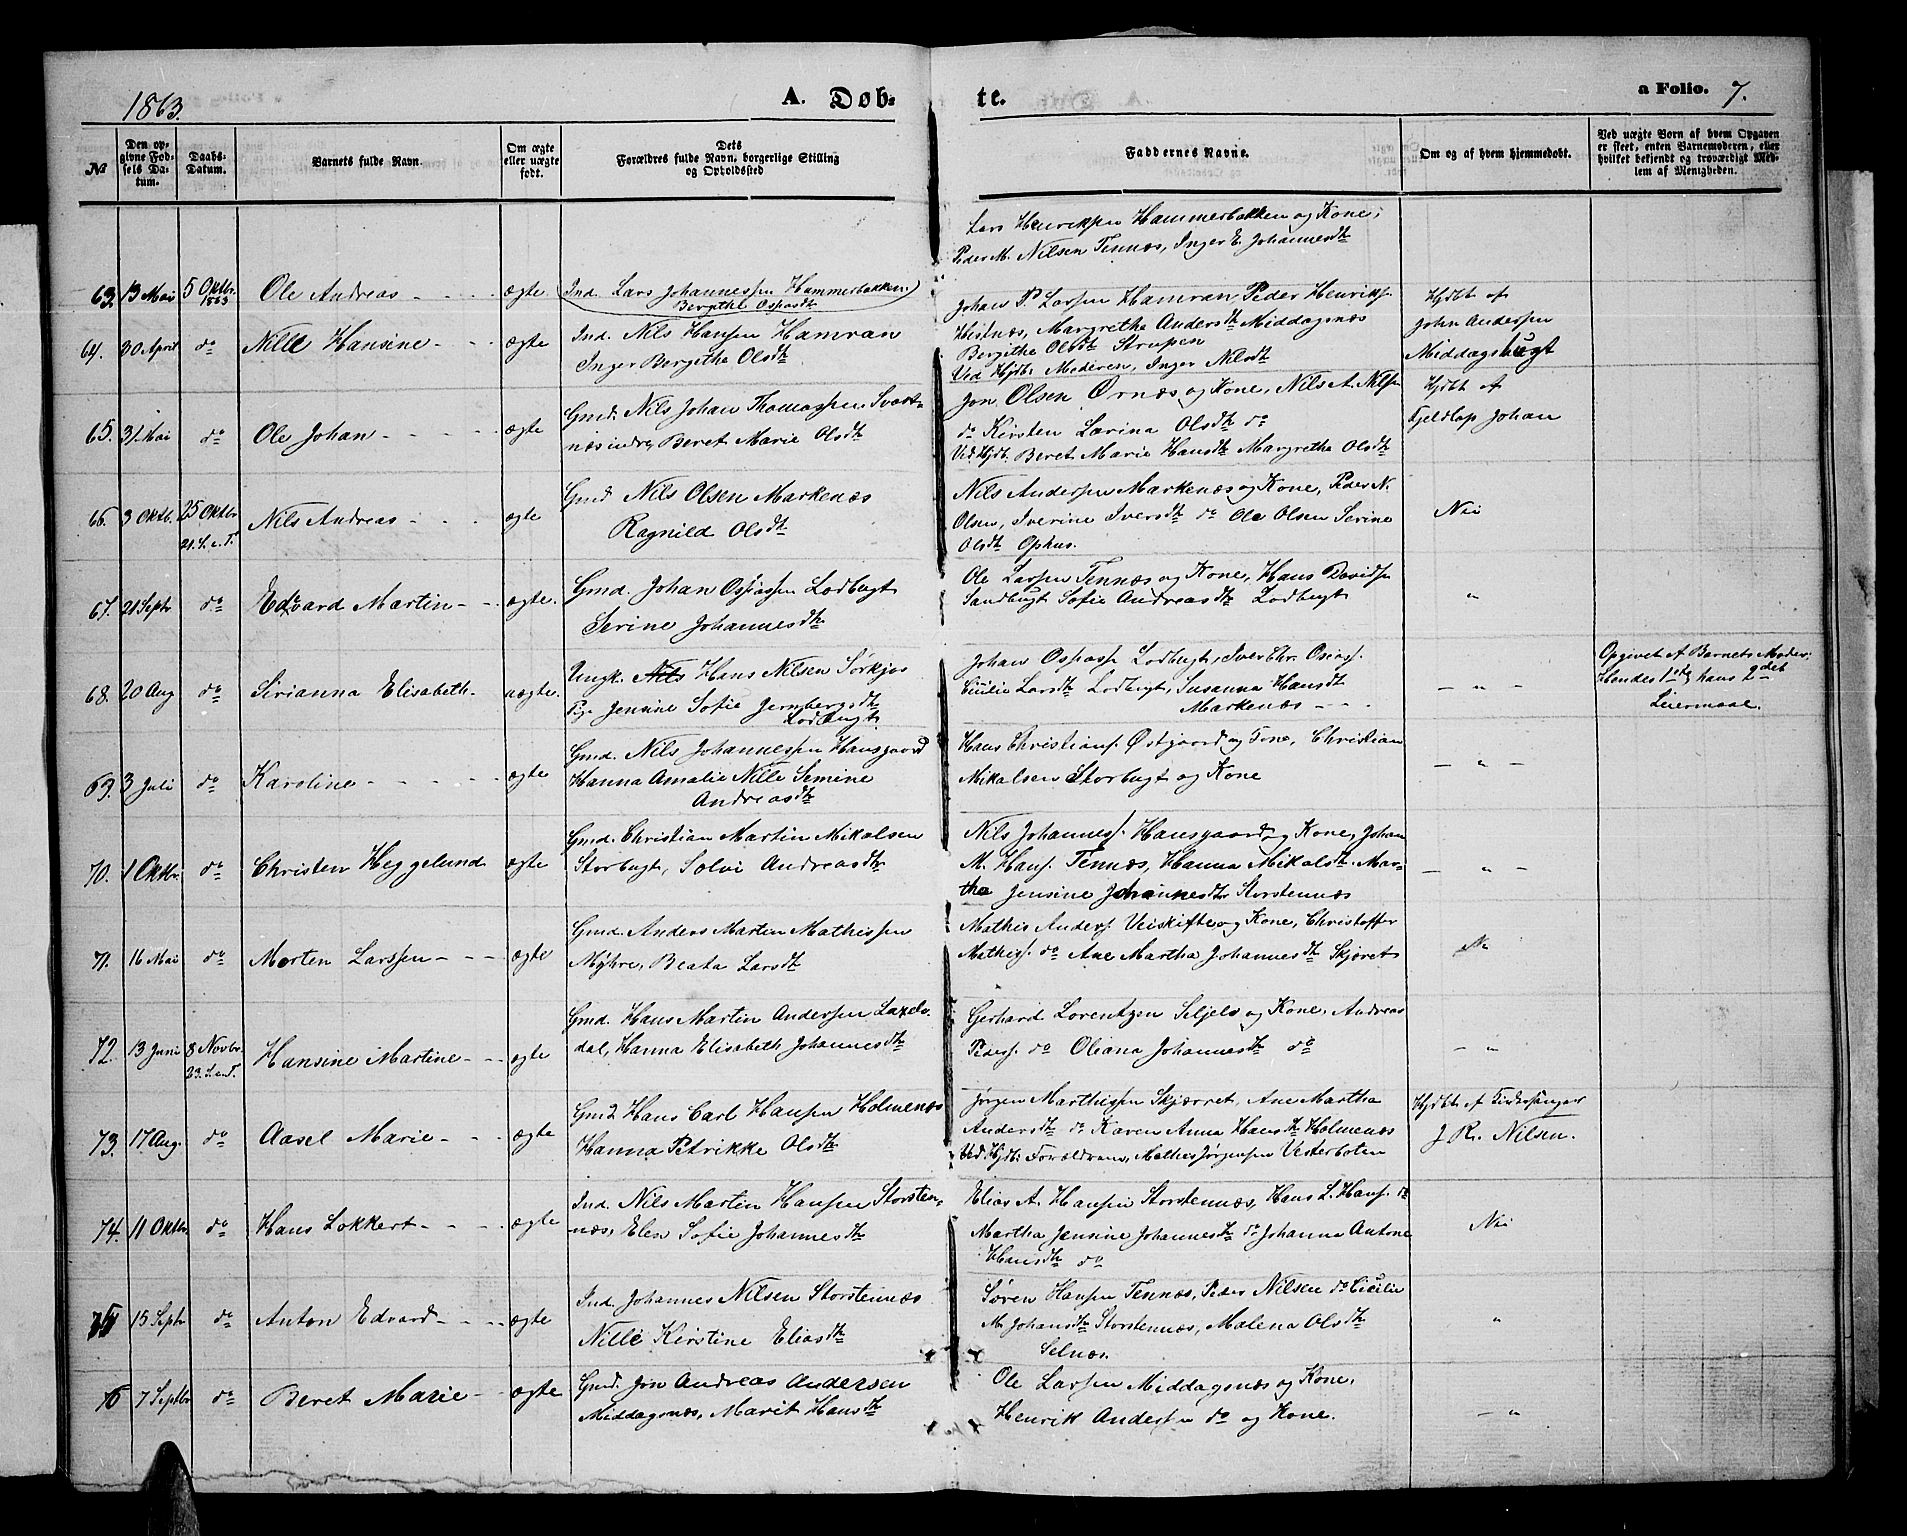 1863.
A. Døb-
te.
a Folio. 7.
№
Den op-
givne Fød-
sels Da-
tum.
Daabs-
Datum.
Barnets fulde Navn.
Om ægte
eller uægte
født.
Dets
Forældres fulde Navn, borgerlige Stilling
og Opholdssted
Faddernes Navne.
Om og af hvem hjemmedøbt.
Ved uægte Børn af hvem Opgaven
er skeet, enten Barnemoderen, eller
hvilket bekjendt og troværdigt Med-
lem af Menigheden.
63. 13 Mai 5 Oktbr. 1863 Ole Andreas - - - ægte
Ind. Lars Johannessen Hammerbakken
Bergithe Ospasdtr
Lars Henriksen Hammerbakken og Kone,
Peder M. Nilsen Tennæs, Inger E. Johannesdtr
64. 30 April do Nille Hansine - - - ægte
Ind. Nils Hansen Hamran
Inger Bergitha Olsdtr
Johan P. Larsen Hamran, Peder Henriks.
Hestnæs, Margretha Andersdtr Middagsnæs
Bergithe Olsdtr Strupen
Ved Hjdb. Moderen, Inger Nilsdtr
Hjdbt af
John Andersen
Middagsbugt
65. 31 Mai do Ole Johan - - - ægte
Gmd. Nils Johan Thomassen Svart-
næs indre, Beret Marie Olsdtr
Jon Olsen Ørnæs og Kone, Nils A. Nilsen
do Kirsten Lavina Olsdtr do
Ved Hjdb. Beret Marie Hansdtr Margretha Olsdtr
Hjdbt af
Fjeldlap Johan
66. 3 Oktb. 25 Oktbr 21. S. e. T. Nils Andreas - - - ægte
Gmd. Nils Olsen Markenæs
Ragnild Olsdtr
Nils Andersen Markenæs og Kone, Peder N.
Olsen, Iverine Iversdtr do Ole Olsen Serine
Olsdtr Ophus.
Nei
67. 21 Septr do Edvard Martin - - ægte.
Gmd. Johan Ospassen Lodbugt
Serine Johannesdtr
Ole Larsen Tennæs og Kone, Hans Davids.
Sandbugt Sofie Andreasdtr Lodbugt
"
68. 20 Aug do Sirianna Elisabeth - uægte.
Ungk. Nils Hans Nilsen Sørkjos
Pige Jensine Sofie Jernbergsdtr
Lodbugt
Johan Ospass. Lodbugt, Iver Chr. Ospass.
Cicilie Larsdtr Lodbugt, Susanna Hansdtr
Markenæs - - -
- " -
Opgivet af Barnets Moder,
Hendes 1ste og hans 2det
Leiermaal.
69. 3 Juli do Karoline - - - ægte
Gmd. Nils Johannessen Hansgaard
Hanna Amalie Nille Semine
Andreasdtr
Hans Christians. Østgaard og Kone, Christian
Mikalsen Storbugt og Kone
- " -
70. 1 Oktbr. do Christen Heggelund ægte
Gmd. Christian Martin Mikalsen
Storbugt, Solvi Andreasdtr.
Nils Johannes. Hansgaard og Kone, Johan
M. Hans. Tennæs, Hanna Mikalsdtr. Mar-
tha Jensine Johannesdtr Storstennæs
- " -
71. 16 Mai do Morten Larssen - - - ægte
Gmd. Anders Martin Mathissen
Myhre, Beata Larsdtr
Mathis Anders. Veiskifte og Kone, Christoffer
Mathiss. do Ane Martha Johannesdtr Skjæret
72. 13 Juni 8 Novbr. 23. S. e. T. Hansine Martine - - ægte
Gmd. Hans Martin Andersen Laxels-
dal, Hanna Elisabeth Johannesdtr
Gerhard Lorentzen Seljels og Kone, Andreas
Peders. do Oliana Johannesdtr do
- "
73. 17 Aug. do Aasel Marie - - - ægte
Gmd Hans Carl Hansen Holmenæs
Hanna Petrikke Olsdtr
Jørgen Marthissen Skjærret, Ane Martha
Andersdtr do Karen Anna Hansdtr Holmenæs
Ved Hjdb. Forældrene, Mathis Jørgensen Vesterboten
Hjdbt af Kirkesanger
J. R. Nilsen.
74. 11 Oktbr. do Hans Lokkert - - - ægte
Ind. Nils Martin Hansen Storsten-
næs, Elen Sofie Johannesdtr
Elias A. Hansen Storstennæs, Hans L. Hans. do
Martha Jensine Johannesdtr do Johanna Antone
Hansdtr do
Nei
75 15 Septr do Anton Edvard - - - ægte
Ind. Johannes Nilsen Storstennæs
Nille Kirstine Eliasdtr
Søren Hansen Tennæs, Peder Nilsen do Cicilie
M. Johansdtr Storstennæs, Malena Olsdtr
Selnæs.
"
76 7 Septbr do Beret Marie - ægte
Gmd. Jon Andreas Andersen
Middagsnæs, Marit Hansdtr
Ole Larsen Middagsnæs og Kone,
Henrik Andersen do og Kone.
- "